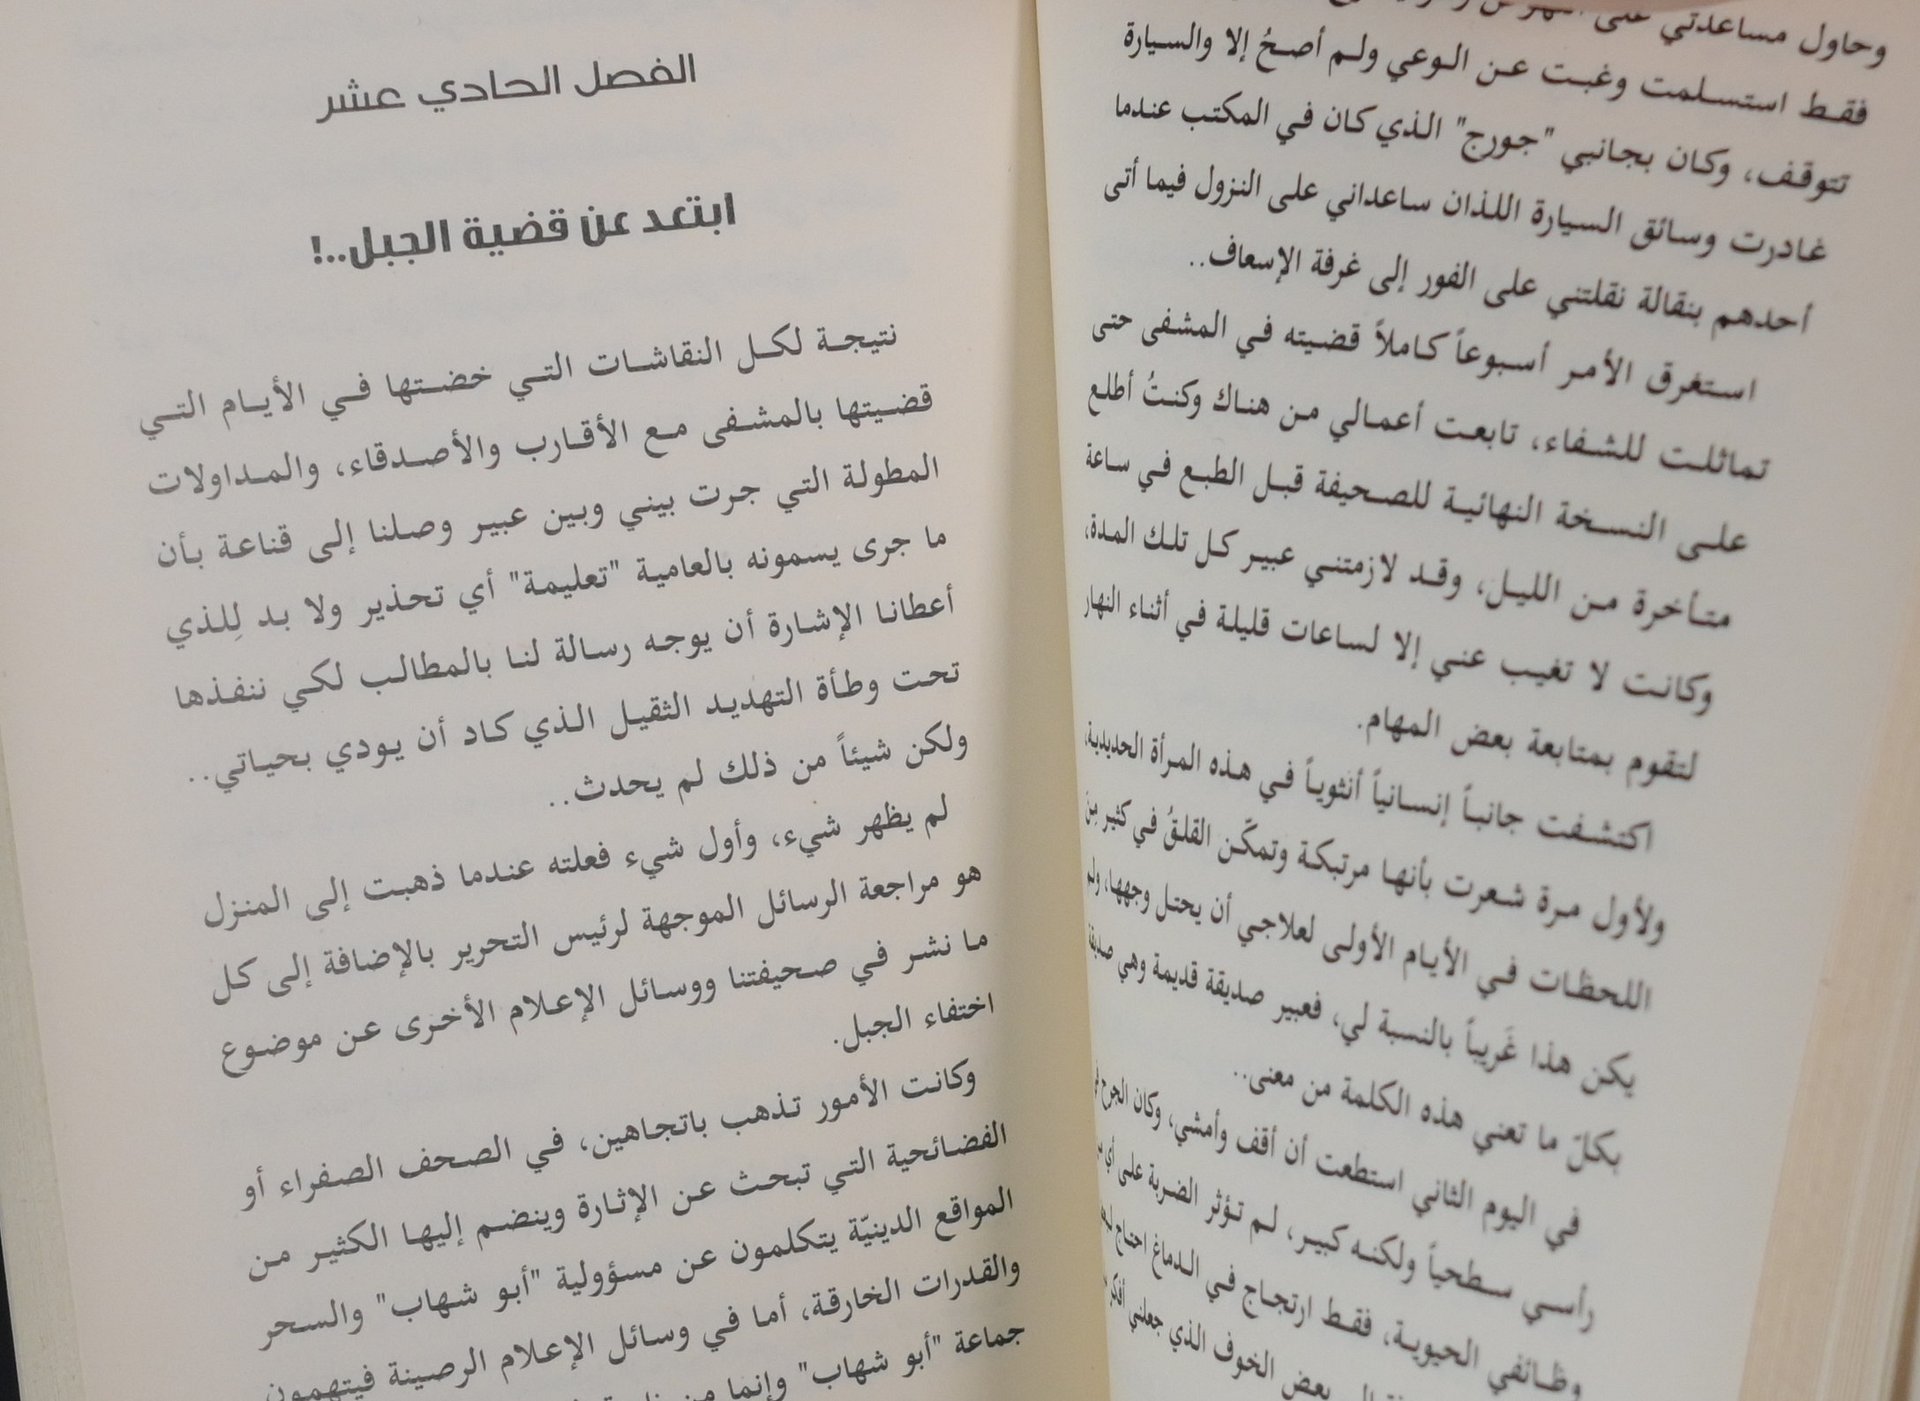 وحاول مساعدتي على
فقط استسلمت وغبت عن الوعي ولم أصحُ إلا والسيارة
تتوقف، وكان بجانبي "جورج" الذي كان في المكتب عندما
غادرت وسائق السيارة اللذان ساعداني على النزول فيما أتى
أحدهم بنقالة نقلتني على الفور إلى غرفة الإسعاف..
استغرق الأمر أسبوعاً كاملاً قضيته في المشفى حتى
تماثلت للشفاء، تابعت أعمالي من هناك وكنتُ أطلع
على النسخة النهائية للصحيفة قبل الطبع في ساعة
متأخرة من الليل، وقد لازمتني عبير كل تلك المدة،
وكانت لا تغيب عني إلا لساعات قليلة في أثناء النهار
لتقوم بمتابعة بعض المهام.
اكتشفت جانباً إنسانياً أنثوياً في هذه المرأة الحديدية،
ولأول مرة شعرت بأنها مرتبكة وتمكّن القلقُ في كثير مِن
اللحظات في الأيام الأولى لعلاجي أن يحتل وجهها، ولم
يكن هذا غَريباً بالنسبة لي، فعبير صديقة قديمة وهي
بكلّ ما تعني هذه الكلمة من معنى..
في اليوم الثاني استطعت أن أقف وأمشي، وكان الجرح
رأسي سطحياً ولكنه كبير، لم تؤثر الضربة على أي
وظائفي الحيوية، فقط ارتجاج في الدماغ احتاج
بعض الخوف الذي جعلني أفكر
الفصل الحادي عشر
ابتعد عن قضية الجبل..!
نتيجة لكل النقاشات التي خضتها في الأيام التي
قضيتها بالمشفى مع الأقارب والأصدقاء، والمداولات
المطولة التي جرت بيني وبين عبير وصلنا إلى قناعة بأن
ما جرى يسمونه بالعامية "تعليمة" أي تحذير ولا بد لِلذي
أعطانا الإشارة أن يوجه رسالة لنا بالمطالب لكي ننفذها
تحت وطأة التهديد الثقيل الذي كاد أن يودي بحياتي..
ولكن شيئاً من ذلك لم يحدث..
لم يظهر شيء، وأول شيء فعلته عندما ذهبت إلى المنزل
هو مراجعة الرسائل الموجهة لرئيس التحرير بالإضافة إلى كل
ما نشر في صحيفتنا ووسائل الإعلام الأخرى عن موضوع
اختفاء الجبل.
وكانت الأمور تذهب باتجاهين، في الصحف الصفراء أو
الفضائحية التي تبحث عن الإثارة وينضم إليها الكثير من
المواقع الدينيّة يتكلمون عن مسؤولية "أبو شهاب" والسحر
والقدرات الخارقة، أما في وسائل الإعلام الرصينة فيتهمون
جماعة "أبو شهاب" وإنما من